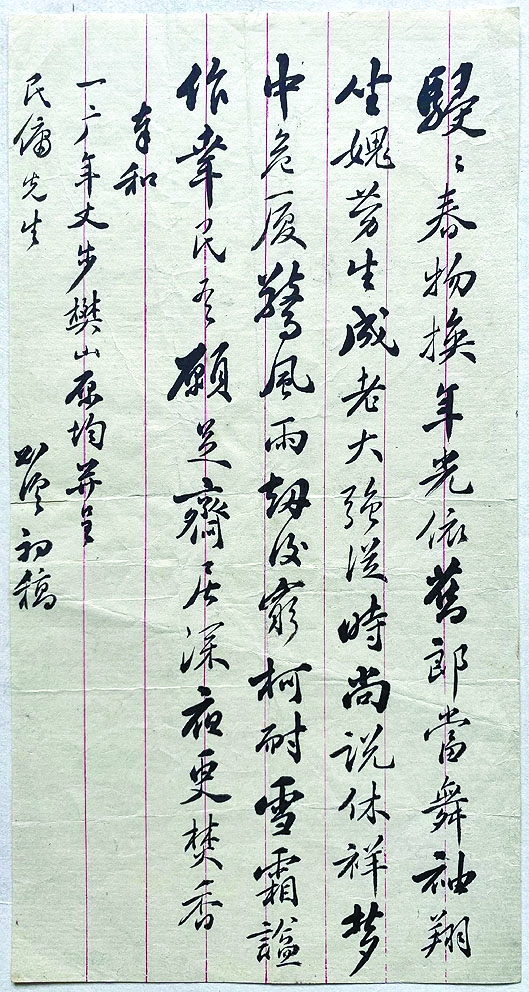 駸〻春物換年光依舊郎當舞袖翔
坐媿勞生成老大強從時尚説休祥夢
中危履驚風雨刼後窮柯耐雪霜謚
作幸民吾願足齋居深夜更焚香
奉和
一厂年丈步樊山原均并呈
民傭先生
初稿